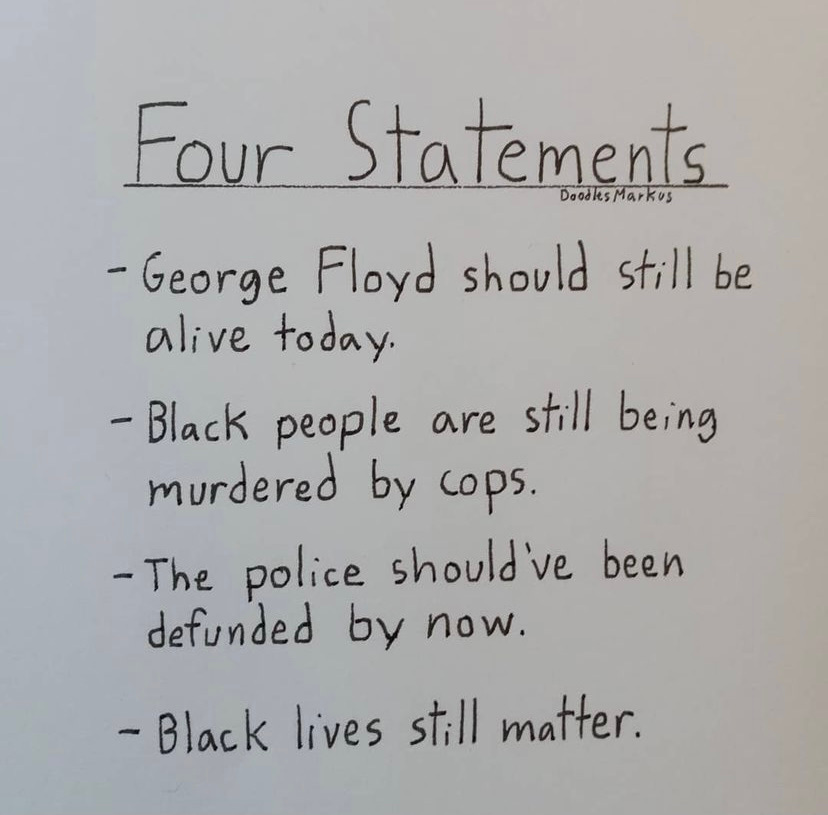 Four Statements
DoodlesMarkus
- George Floyd should still be
alive today.
- Black people are still being
murdered by cops.
- The police should've been
defunded by now.
- Black lives still matter.